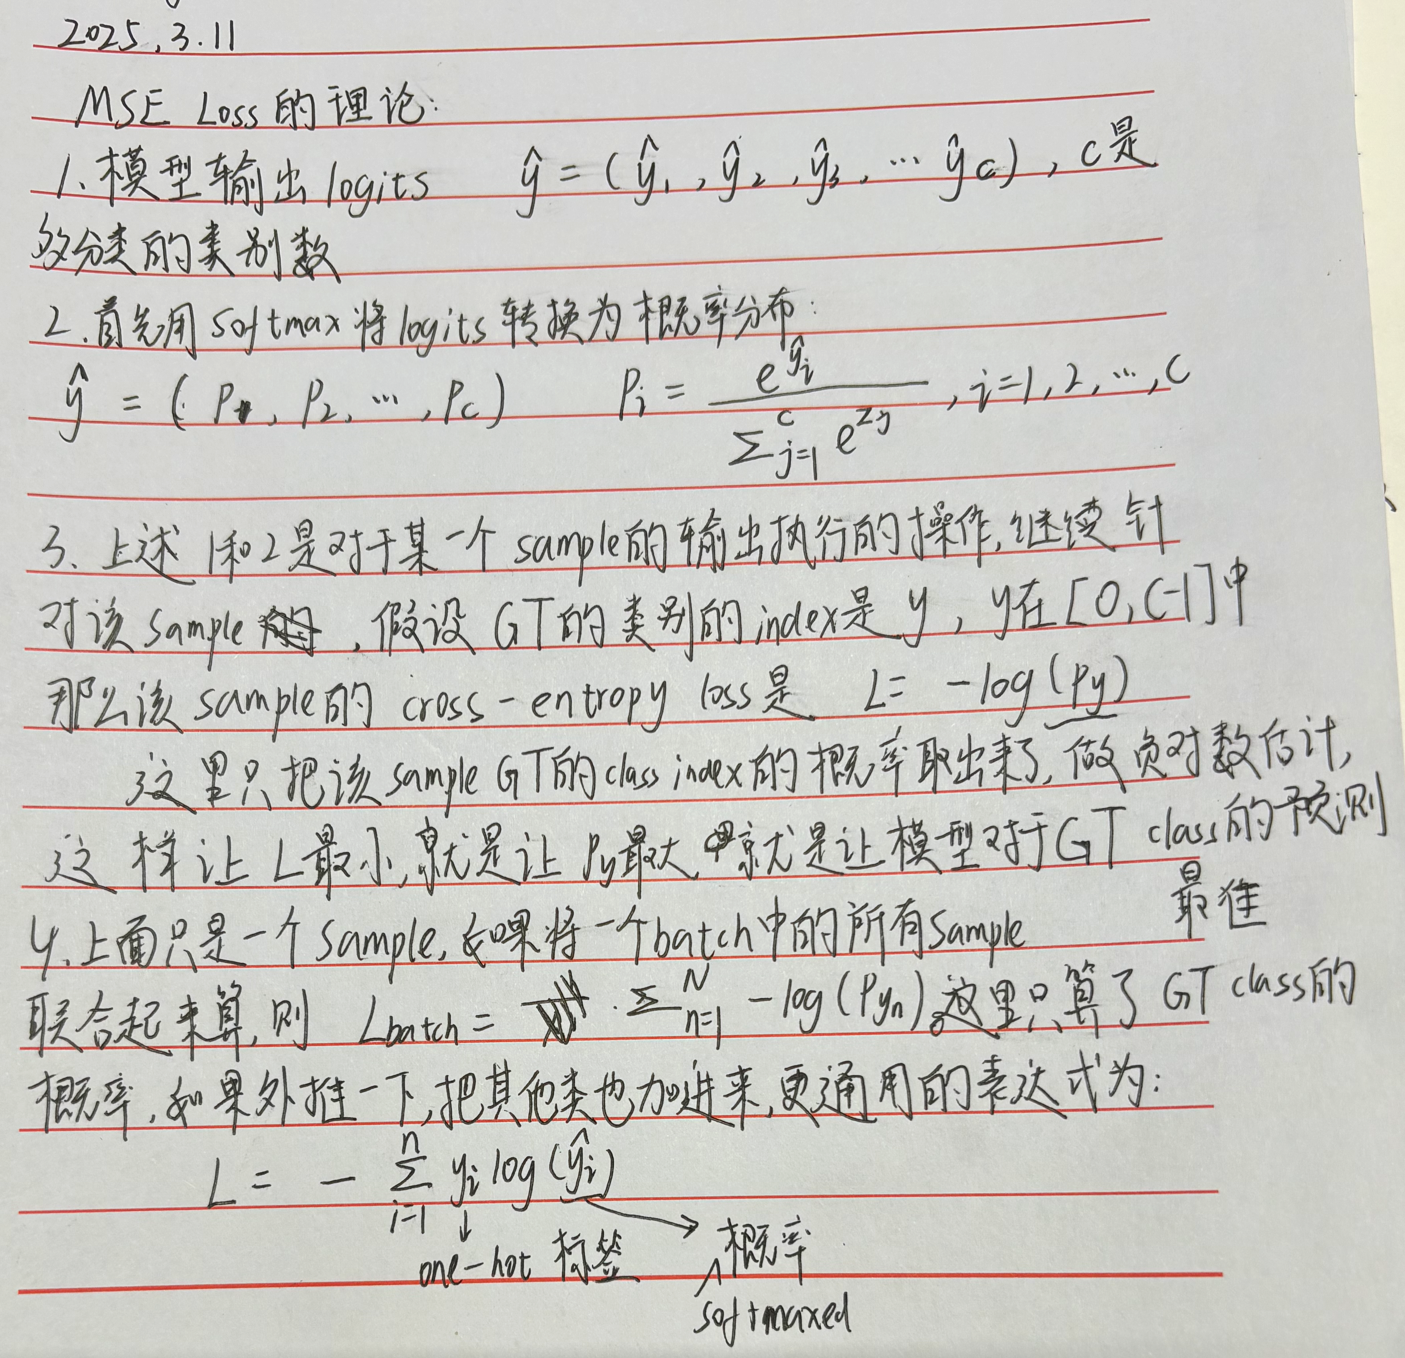 2025.3.11
MSE Loss的理论:
1.模型输出logits ŷ = (ŷ₁, ŷ₂, ŷ₃, … ŷc), C是
多分类的类别数
2.首先用softmax将logits转换为概率分布:
ŷ = (P₁, P₂, …, Pc) Pᵢ = e^ŷᵢ / Σ_{j=1}^{C} e^{zj}, i=1,2,…,C
3.上述1和2是对于某一个sample的输出执行的操作,继续针
对该sample,假设GT的类别的index是y, y在[0,C-1]中
那么该sample的cross-entropy loss是 L = -log(Py)
这里只把该sample GT的class index的概率取出来了,做负对数估计,
这样让L最小,就是让Py最大,就是让模型对于GT class的预测
最准
4.上面只是一个sample,如果将一个batch中的所有sample
联合起来算,则 Lbatch = Σ_{n=1}^{N} -log(Pyn)。这里只算了GT class的
概率,如果外推一下,把其他类也加进来,更通用的表达式为:
L = - Σ_{i=1}^{n} yᵢ log(ŷᵢ)
one-hot 标签 概率
softmaxed